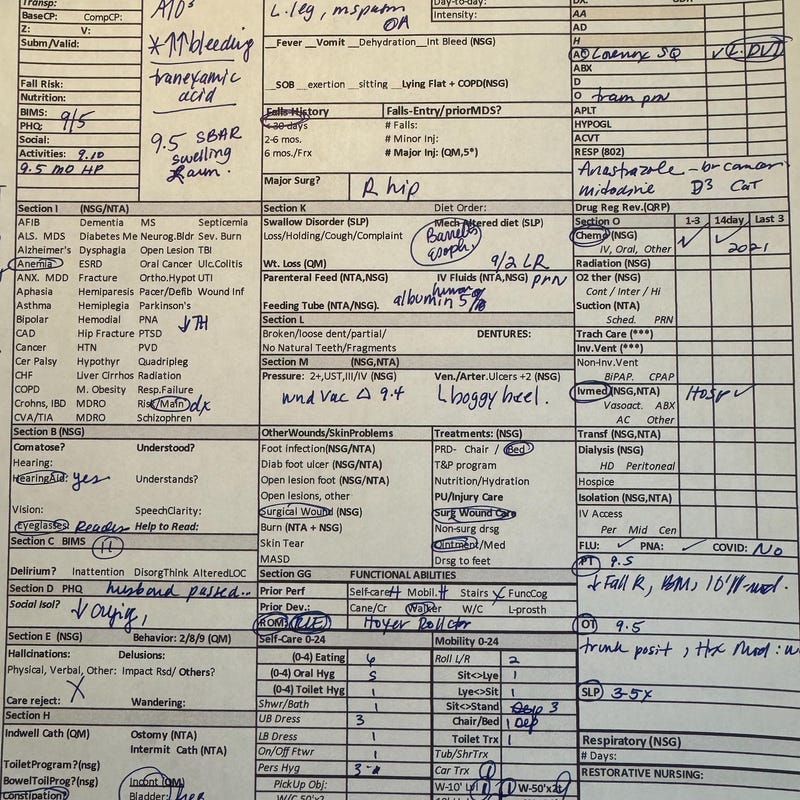 Transp:
BaseCP: CompCP:
Z: V:
Subm/Valid:
Fall Risk:
Nutrition:
BIMS:
PHQ: 9/5
Social:
Activities: 9.10
9.5 MD HP
*↑↑bleeding
tranexamic
acid
9.5 SBAR
swelling
L. leg,
OA
__Fever __Vomit __Dehydration__Int Bleed (NSG)
__SOB __exertion __sitting __Lying Flat + COPD(NSG)
Falls History Falls-Entry/priorMDS?
<30 days # Falls:
2-6 mos. # Minor Inj:
6 mos./Frx # Major Inj: (QM,5*)
Major Surg? R hip
Day-to-day:
Intensity:
AA
AD
H
AC Lovenox SQ ✓ L. DVT
ABX
D
O tram prn
APLT
HYPOGL
ACVT
RESP (802)
Anastrazole - br cancer
midodrine D3 Cat
Drug Reg Rev.(QRP)
Section I (NSG/NTA)
AFIB Dementia MS Septicemia
ALS. MDS Diabetes Me Neurog.Bldr Sev. Burn
Alzheimer's Dysphagia Open Lesion TBI
Anemia ESRD Oral Cancer Ulc.Colitis
ANX. MDD Fracture Ortho.Hypot UTI
Aphasia Hemiparesis Pacer/Defib Wound Inf
Asthma Hemiplegia Parkinson's
Bipolar Hemodial PNA
CAD Hip Fracture PTSD
Cancer HTN PVD
Cer Palsy Hypothyr Quadripleg
CHF Liver Cirrhos Radiation
COPD M. Obesity Resp.Failure
Crohns, IBD MDRO Risk/Main dx
CVA/TIA MDRO Schizophren
Section K Diet Order:
Swallow Disorder (SLP) Mech Altered diet (SLP)
Loss/Holding/Cough/Complaint
Wt. Loss (QM) 9/2 LR
Parenteral Feed (NTA,NSG) IV Fluids (NTA,NSG) prn
Feeding Tube (NTA/NSG). albumin human 5%
Section L
Broken/loose dent/partial/ DENTURES:
No Natural Teeth/Fragments
Section M (NSG,NTA)
Pressure: 2+,UST,III/IV (NSG) Ven./Arter.Ulcers +2 (NSG)
wnd vac Δ 9.4 L boggy heel.
Section O 1-3 14day Last 3
Chemo (NSG) ✓ ✓
IV, Oral, Other 2021
Radiation (NSG)
O2 ther (NSG)
Cont / Inter / Hi
Suction (NTA)
Sched. PRN
Trach Care (***)
Inv.Vent (***)
Non-Inv.Vent
BiPAP. CPAP
Ivmed (NSG,NTA) Hosp ✓
Vasoact. ABX
AC Other
Transf (NSG,NTA)
Dialysis (NSG)
HD Peritoneal
Hospice
Isolation (NSG,NTA)
IV Access
Per Mid Cen
FLU: ✓ PNA: ✓ COVID: NO
PT 9.5
↓ Fall R, BM, 10'
OT 9.5
trunk posit,
SLP 3-5x
Respiratory (NSG)
# Days:
RESTORATIVE NURSING:
Section B (NSG)
Comatose? Understood?
Hearing:
HearingAid: yes Understands?
Vision: SpeechClarity:
Eyeglasses Reader Help to Read:
Section C BIMS 11
Delirium? Inattention DisorgThink AlteredLOC
Section D PHQ husband passed...
Social Isol? ↓ crying,
Section E (NSG) Behavior: 2/8/9 (QM)
Hallcinations: Delusions:
Physical, Verbal, Other: Impact Rsd/ Others?
Care reject: Wandering:
Section H
Indwell Cath (QM) Ostomy (NTA)
Intermit Cath (NTA)
ToiletProgram?(nsg)
BowelToilProg?(nsg) Incont (QM)
Constipation? Bladder:
OtherWounds/SkinProblems Treatments: (NSG)
Foot infection(NSG/NTA) PRD- Chair / Bed
Diab foot ulcer (NSG/NTA) T&P program
Open lesion foot (NSG/NTA) Nutrition/Hydration
Open lesions, other PU/Injury Care
Surgical Wound (NSG) Surg Wound Care
Burn (NTA + NSG) Non-surg drsg
Skin Tear Ointment/Med
MASD Drsg to feet
Section GG FUNCTIONAL ABILITIES
Prior Perf Self-care Mobil. Stairs FuncCog
Prior Dev.: Cane/Cr Walker W/C L-prosth
ROM: RLE Hoyer Rollator
Self-Care 0-24 Mobility 0-24
(0-4) Eating 6 Roll L/R 2
(0-4) Oral Hyg 5 Sit<>Lye 1
(0-4) Toilet Hyg 1 Lye<>Sit 1
Shwr/Bath 1 Sit<>Stand 3
UB Dress 3 Chair/Bed 1 Dep
LB Dress 1 Toilet Trx 1
On/Off Ftwr 1 Tub/ShrTrx
Pers Hyg 3 Car Trx
PickUp Obj: W-10' W-50'x2
W/C 50'x2